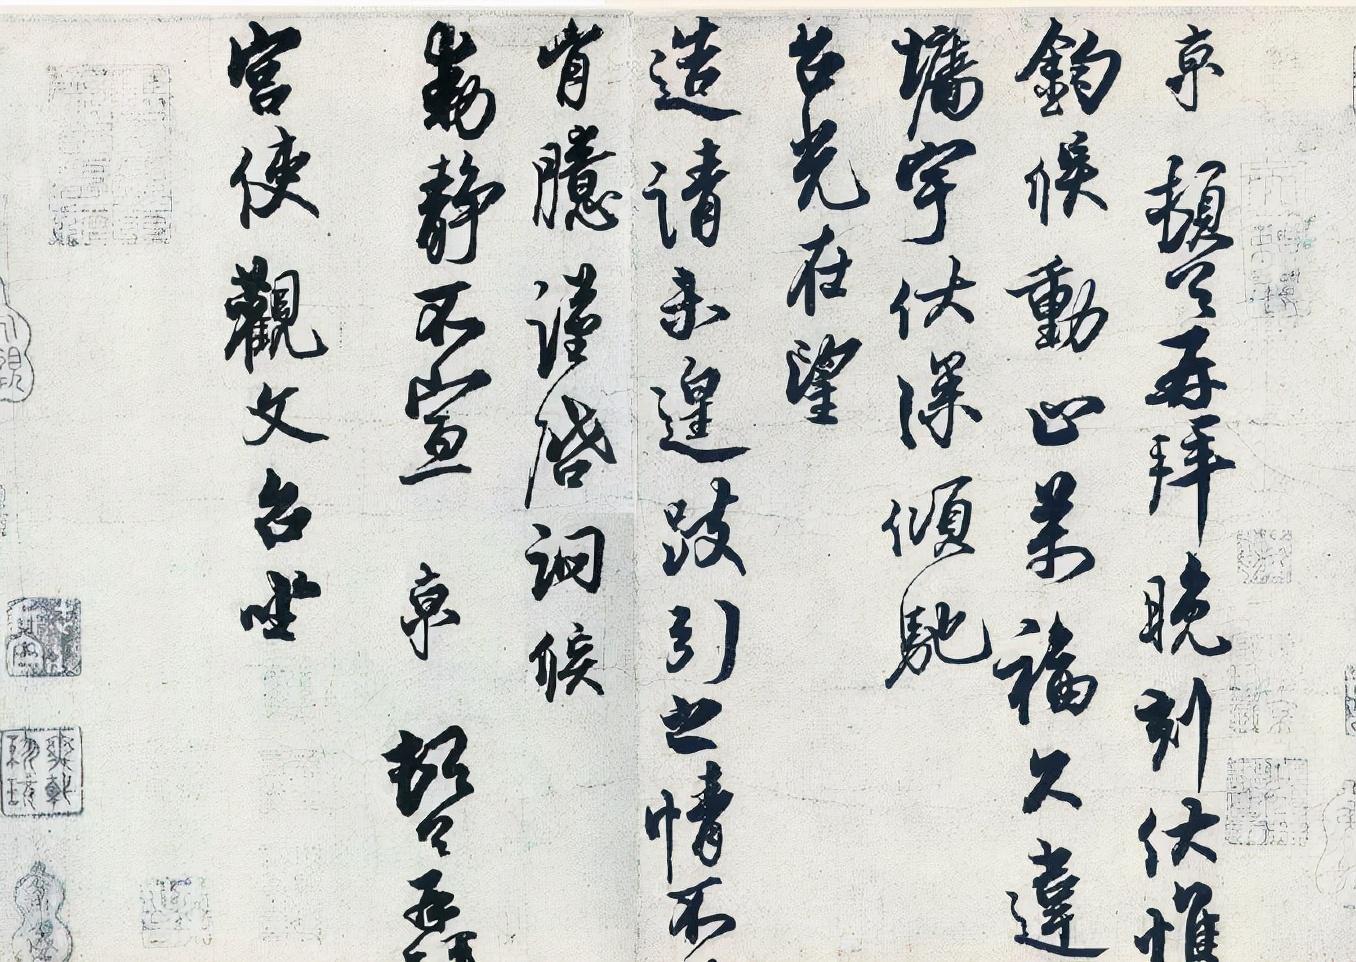 京 頓首再拜晚刻伏惟
鈞候動止萬福久違
墉宇伏深傾馳
台光在望
造請未遑跂引之情不
胸臆謹啓詗候
動靜不宣 京 頓首再拜
宮使觀文台坐